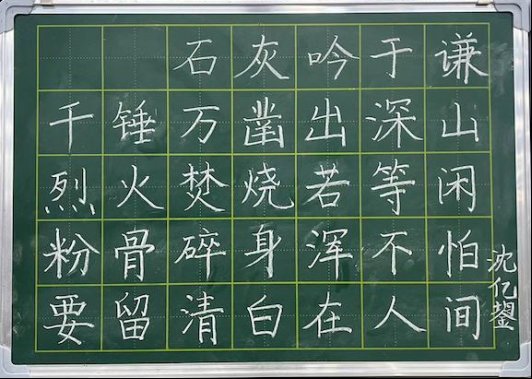 石灰吟于谦
千锤万凿出深山
烈火焚烧若等闲
粉骨碎身浑不怕
要留清白在人间
沈亿鋆